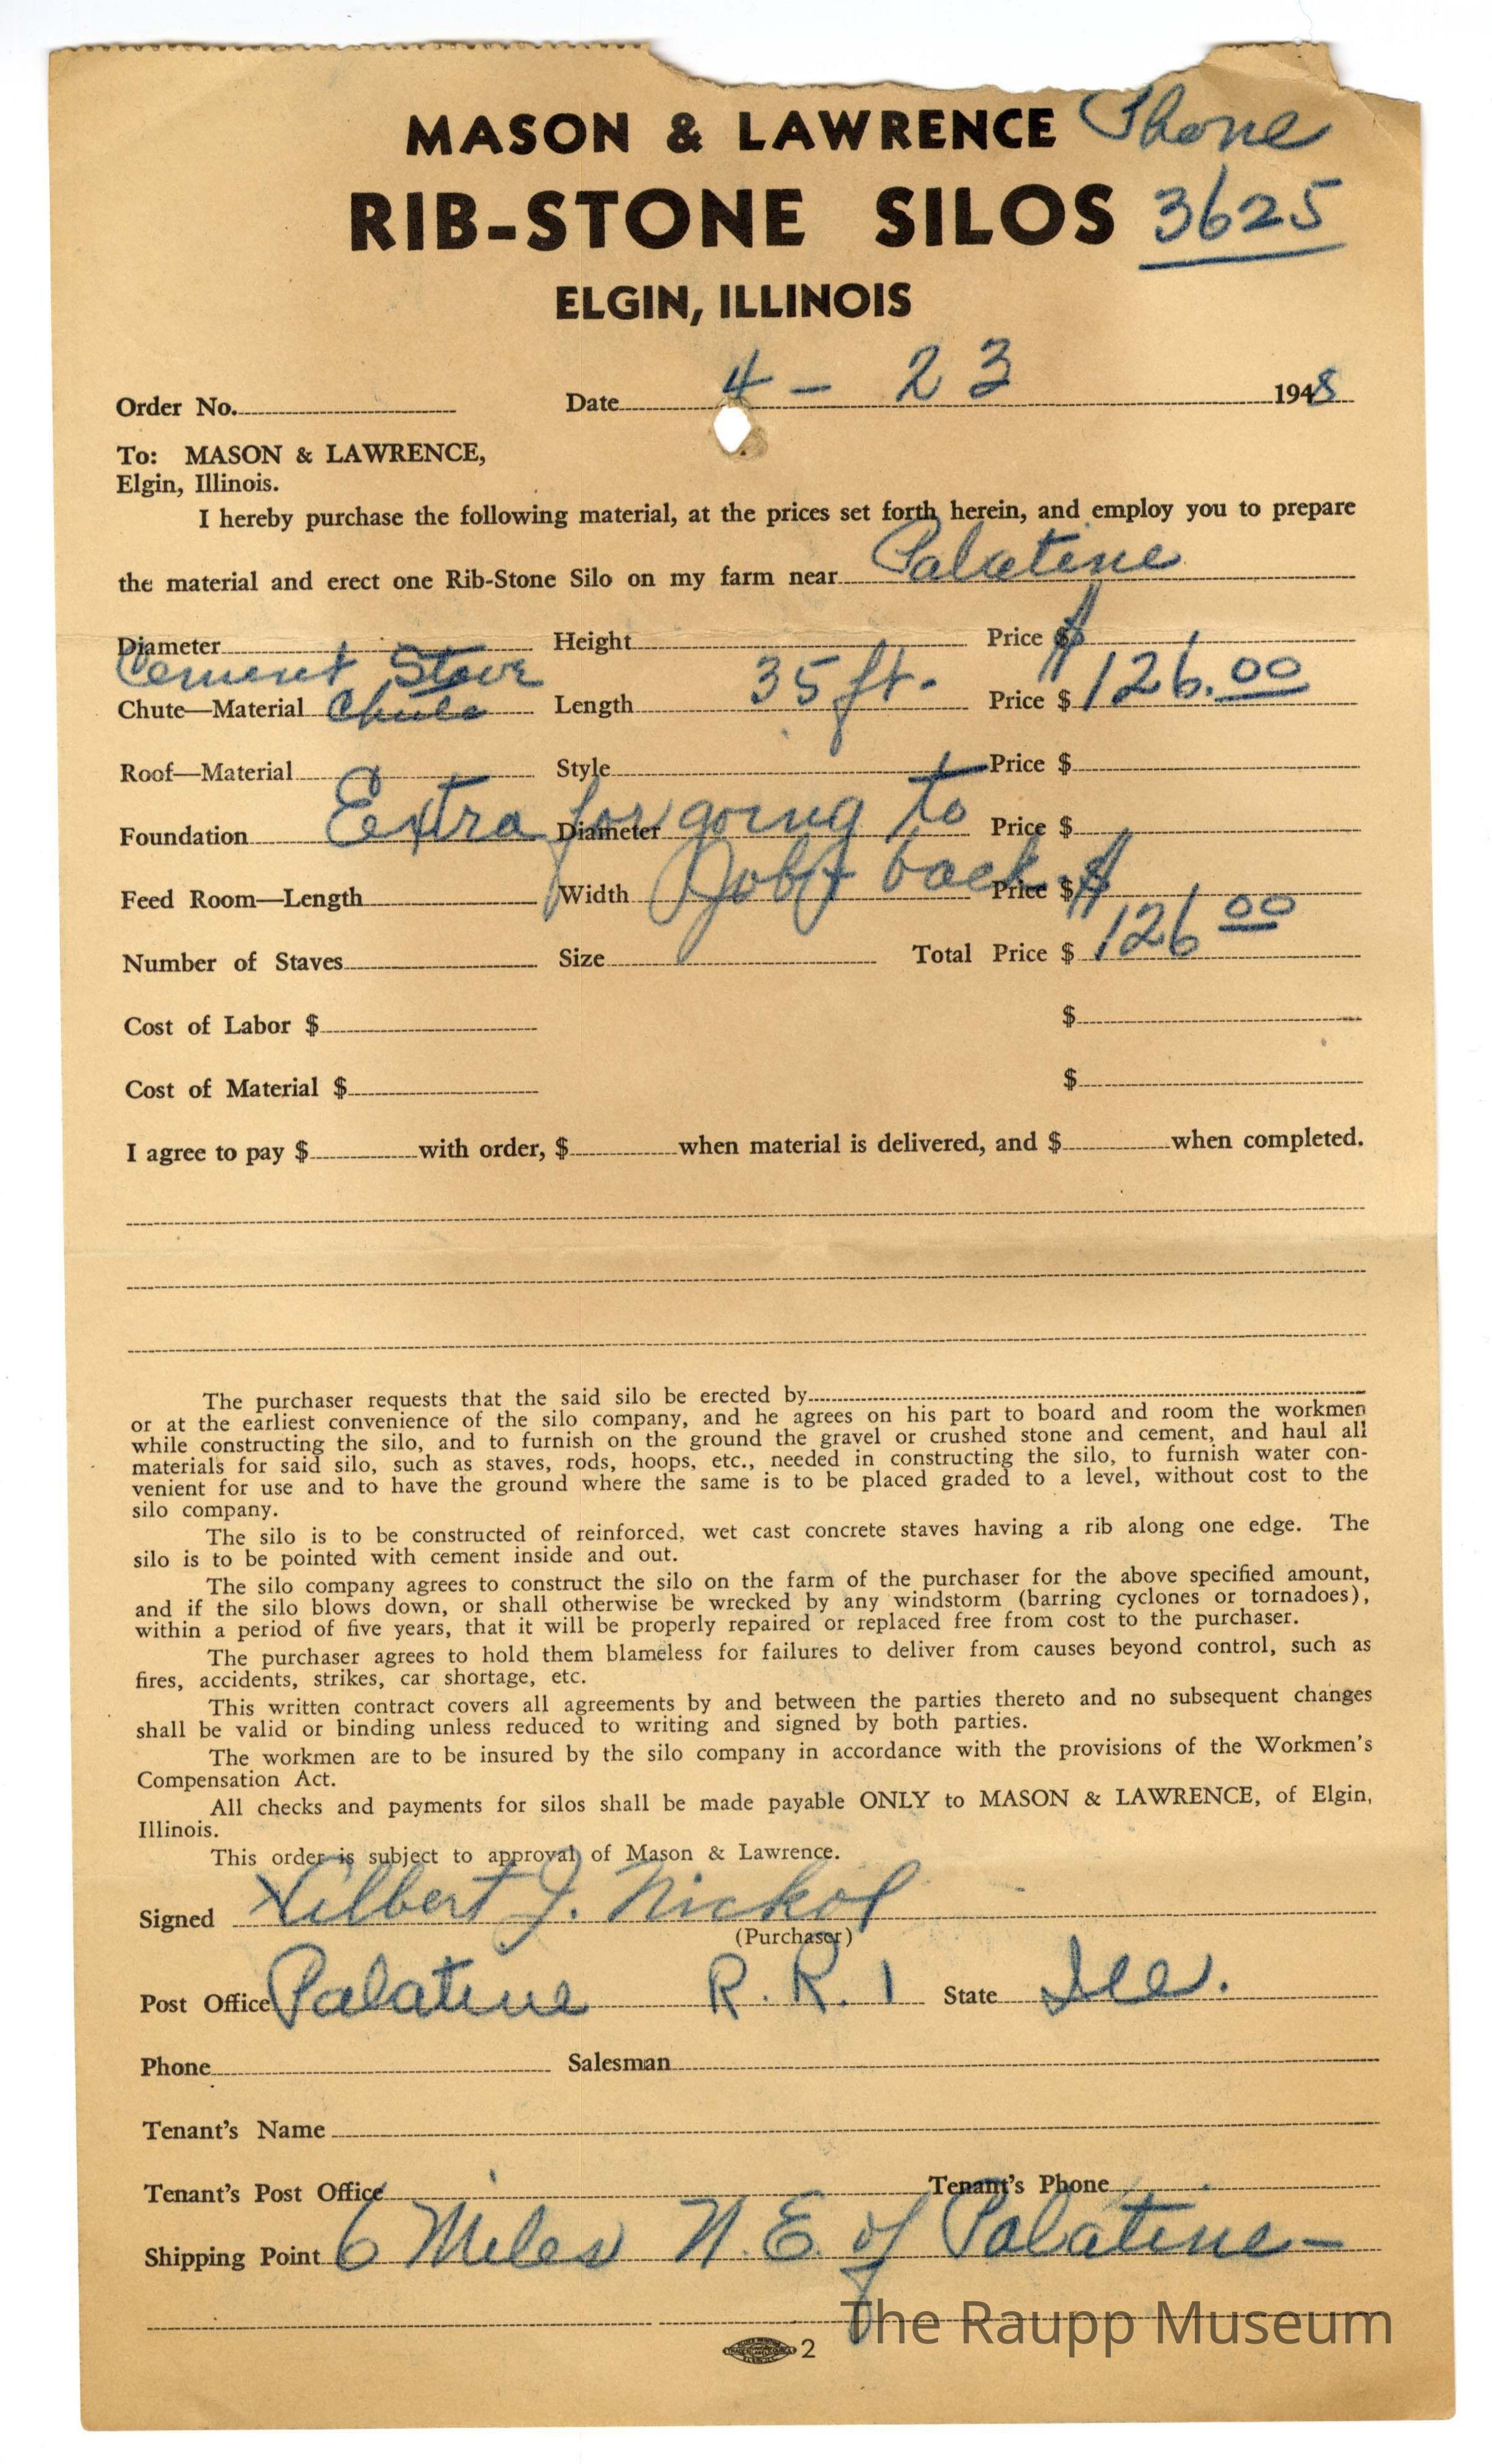 MASON & LAWRENCE Phone
RIB-STONE SILOS 3625
ELGIN, ILLINOIS
Order No. Date 4 - 23 1948
To: MASON & LAWRENCE,
Elgin, Illinois.
I hereby purchase the following material, at the prices set forth herein, and employ you to prepare
the material and erect one Rib-Stone Silo on my farm near Palatine
Diameter Height Price $
Cement Stave
Chute—Material Chute Length 35 ft. Price $ 126.00
Roof—Material Style Price $
Foundation Extra for going to Diameter Price $
Feed Room—Length Width Job & back Price $
Number of Staves Size Total Price $ 126 00
Cost of Labor $ $
Cost of Material $ $
I agree to pay $ with order, $ when material is delivered, and $ when completed.
The purchaser requests that the said silo be erected by
or at the earliest convenience of the silo company, and he agrees on his part to board and room the workmen
while constructing the silo, and to furnish on the ground the gravel or crushed stone and cement, and haul all
materials for said silo, such as staves, rods, hoops, etc., needed in constructing the silo, to furnish water con-
venient for use and to have the ground where the same is to be placed graded to a level, without cost to the
silo company.
The silo is to be constructed of reinforced, wet cast concrete staves having a rib along one edge. The
silo is to be pointed with cement inside and out.
The silo company agrees to construct the silo on the farm of the purchaser for the above specified amount,
and if the silo blows down, or shall otherwise be wrecked by any windstorm (barring cyclones or tornadoes),
within a period of five years, that it will be properly repaired or replaced free from cost to the purchaser.
The purchaser agrees to hold them blameless for failures to deliver from causes beyond control, such as
fires, accidents, strikes, car shortage, etc.
This written contract covers all agreements by and between the parties thereto and no subsequent changes
shall be valid or binding unless reduced to writing and signed by both parties.
The workmen are to be insured by the silo company in accordance with the provisions of the Workmen's
Compensation Act.
All checks and payments for silos shall be made payable ONLY to MASON & LAWRENCE, of Elgin,
Illinois.
This order is subject to approval of Mason & Lawrence.
Signed J. Nickol
(Purchaser)
Post Office Palatine R. R. 1 State Ill.
Phone Salesman
Tenant's Name
Tenant's Post Office Tenant's Phone
Shipping Point 6 Miles N. E. of Palatine—
The Raupp Museum
2